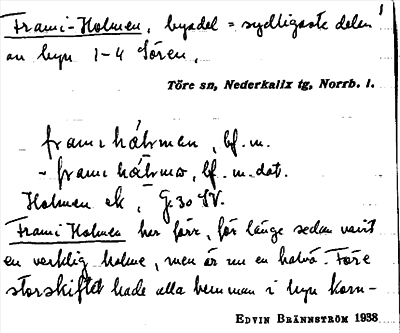 Frami-Holmen, bysdel = sydligaste delen
av byn 1-4 Sören.
Töre sn, Nederkalix tg, Norrb. l.
frami hålmen, bf. m.
- frami hålmo, bf. m. dat.
Holmen ek, G 30 SV.
Frami Holmen har förr, för länge sedan varit
en verklig holme, men är nu en halvö. Före
storskiftet hade alla hemman i byn korn-
EDVIN BRÄNNSTRÖM 1938